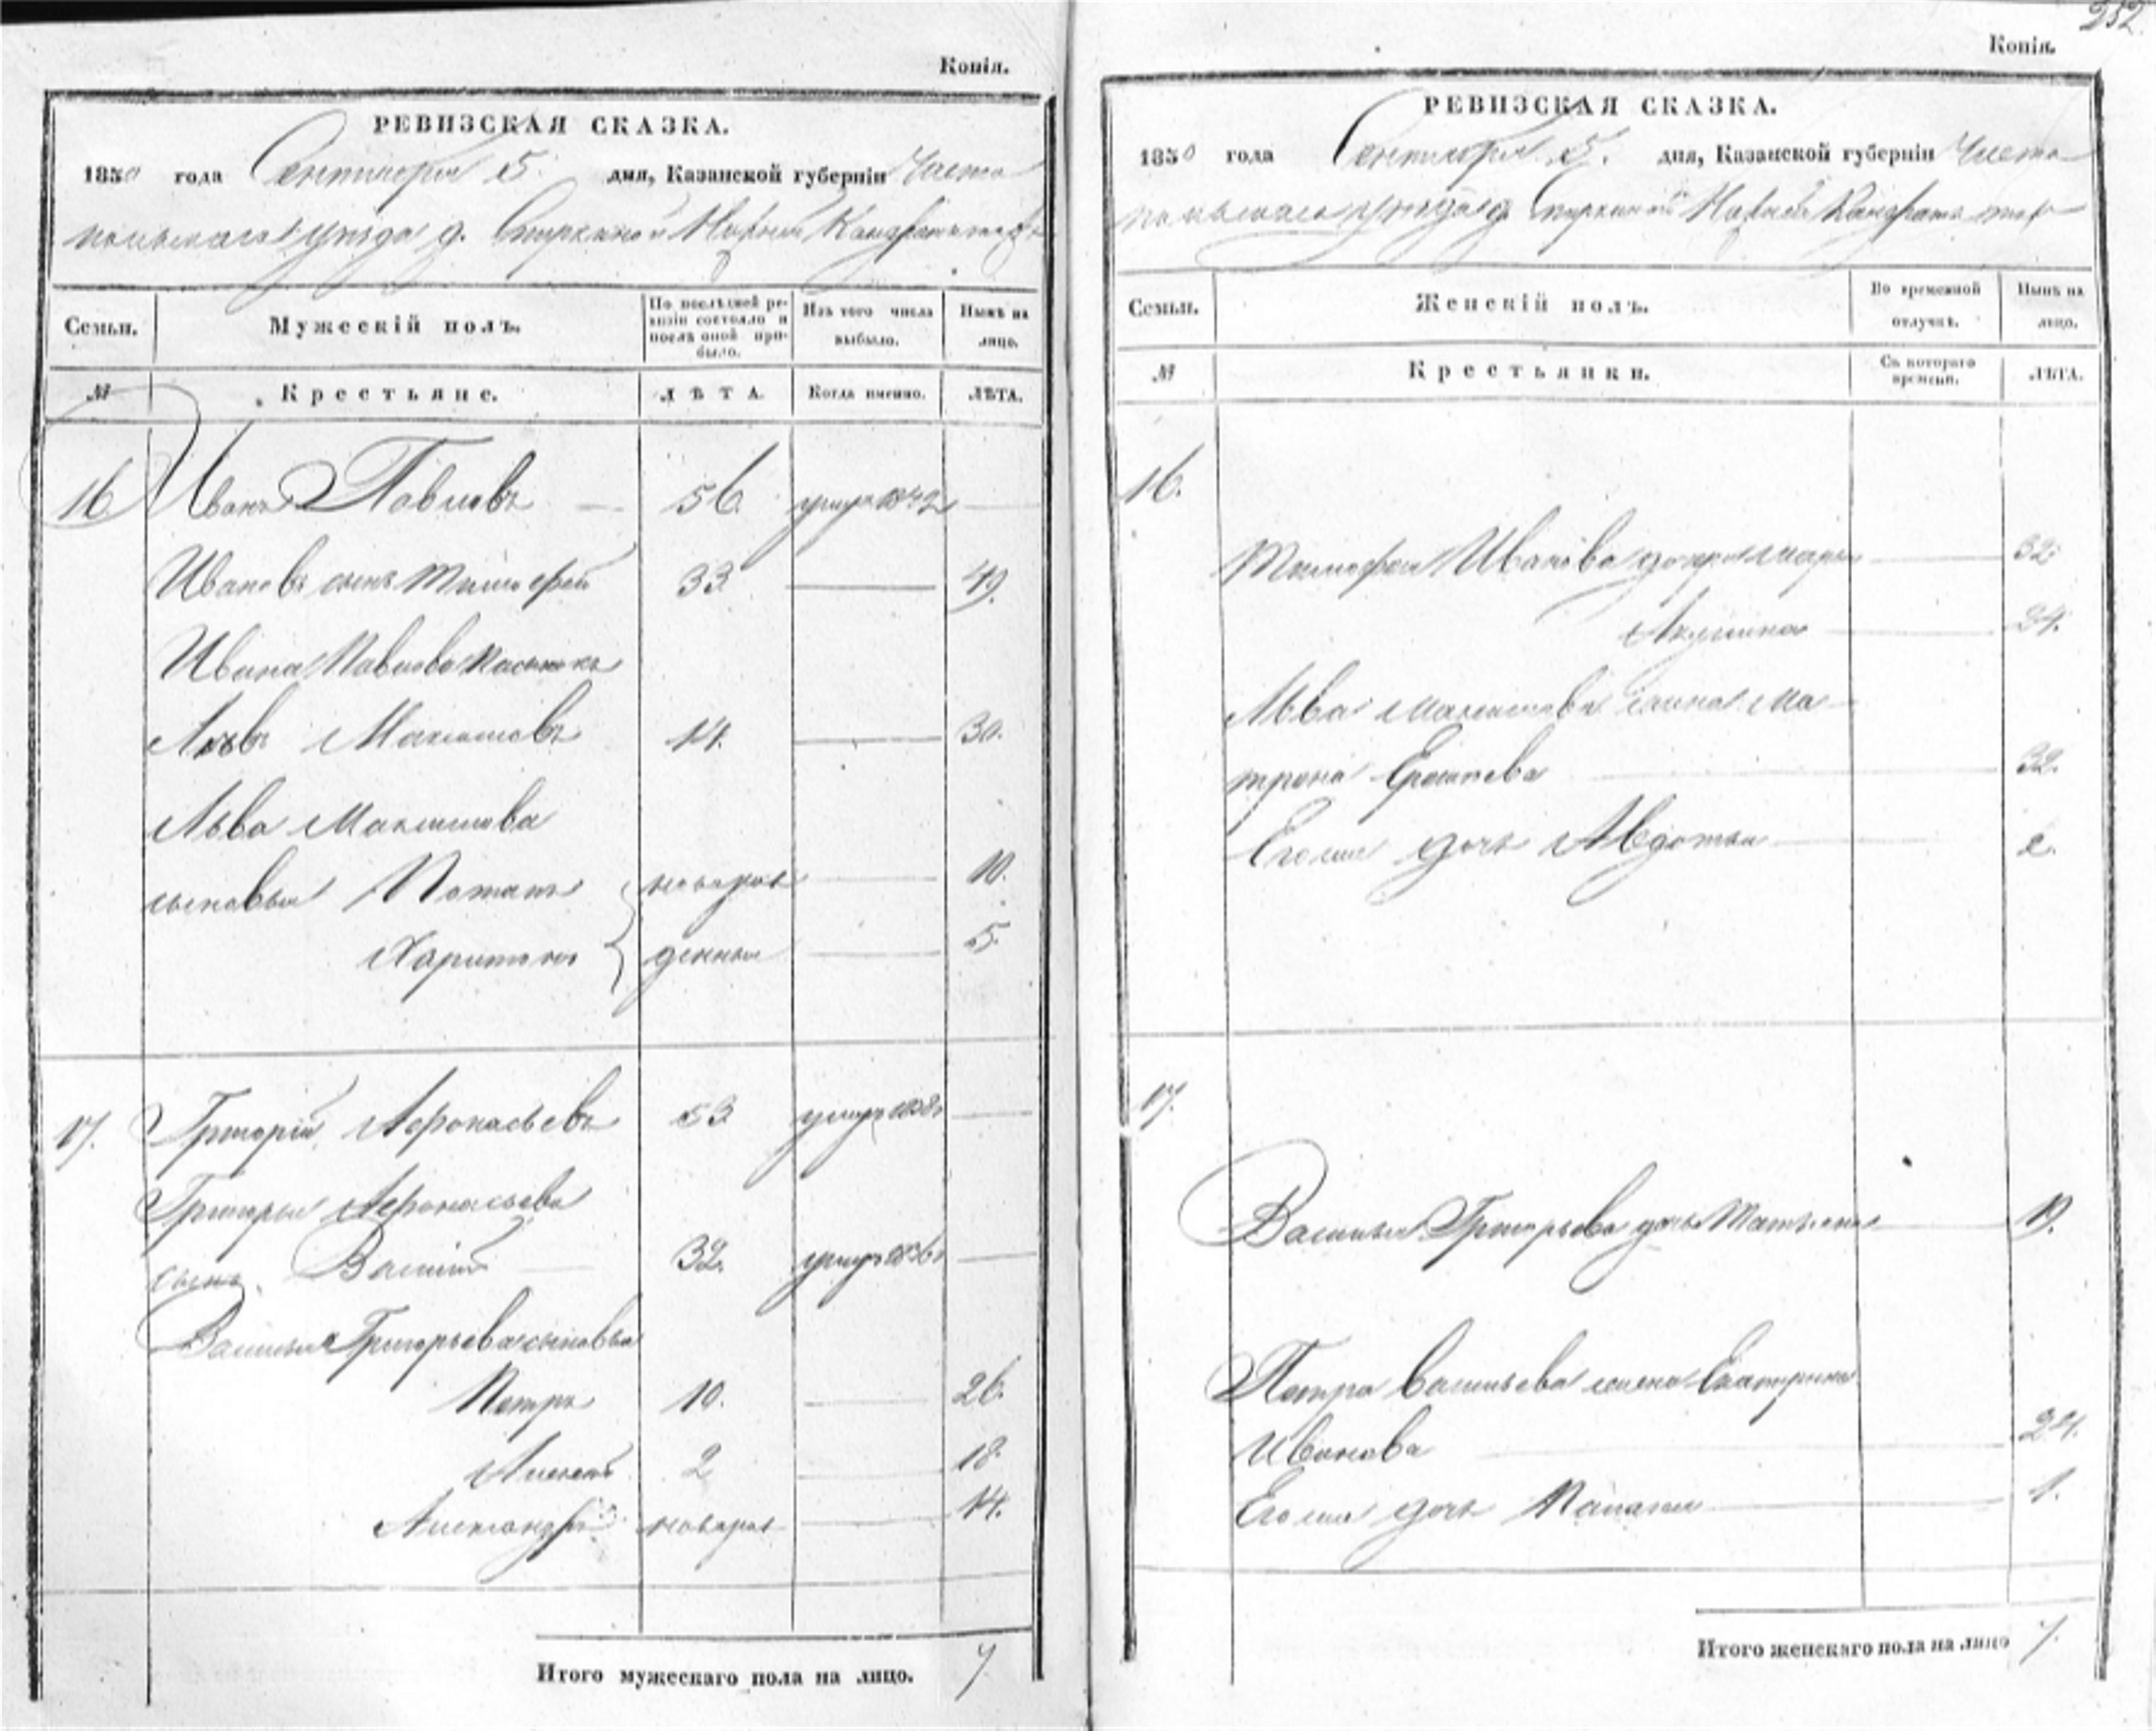 Копія.
РЕВИЗСКАЯ СКАЗКА.
1850 года Сентября 5. дня, Казанской губерніи Чисто
польскаго уѣзда д.
Семьи.
Мужескій полъ.
По послѣдней ре-
визіи состояло и
послѣ оной при-
было.
Изъ того числа
выбыло.
Нынѣ на
лицо.
№
Крестьяне.
ЛѢТА.
Когда именно.
ЛѢТА.
16 Иванъ Павловъ — 56. умер. 1842 —
Ивановъ сынъ Тимофей 33. — 49.
Ивана Павлова
Левъ Максимовъ 14. — 30.
Льва Максимова
сыновья Потапъ новорож — 10.
Харитонъ денные — 5.
17. Григорій Афонасьевъ 53 умер —
Григорья Афонасьева
сынъ Василій — 32. умер —
Василья Григорьева сыновья
Петръ 10. — 26.
Алексей 2 — 18.
Александръ новорож — 14.
Итого мужескаго пола на лицо. 7
252.
Копія.
РЕВИЗСКАЯ СКАЗКА.
1850 года Сентября 5. дня, Казанской губерніи Чисто
польскаго уѣзда д.
Семьи.
Женскій полъ.
Во временной
отлучкѣ.
Нынѣ на
лицо.
№
Крестьянки.
Съ котораго
времени.
ЛѢТА.
16.
Тимофея Иванова дочери Марья — 32.
Акулина — 24.
Льва Максимова жена Ма
трона — 32.
Его же дочь Авдотья — 2.
17.
Василья Григорьева дочь Татьяна — 19.
Петра Васильева жена Екатерина
Иванова — 24.
Его же дочь Палагея — 1.
Итого женскаго пола на лицо 7.